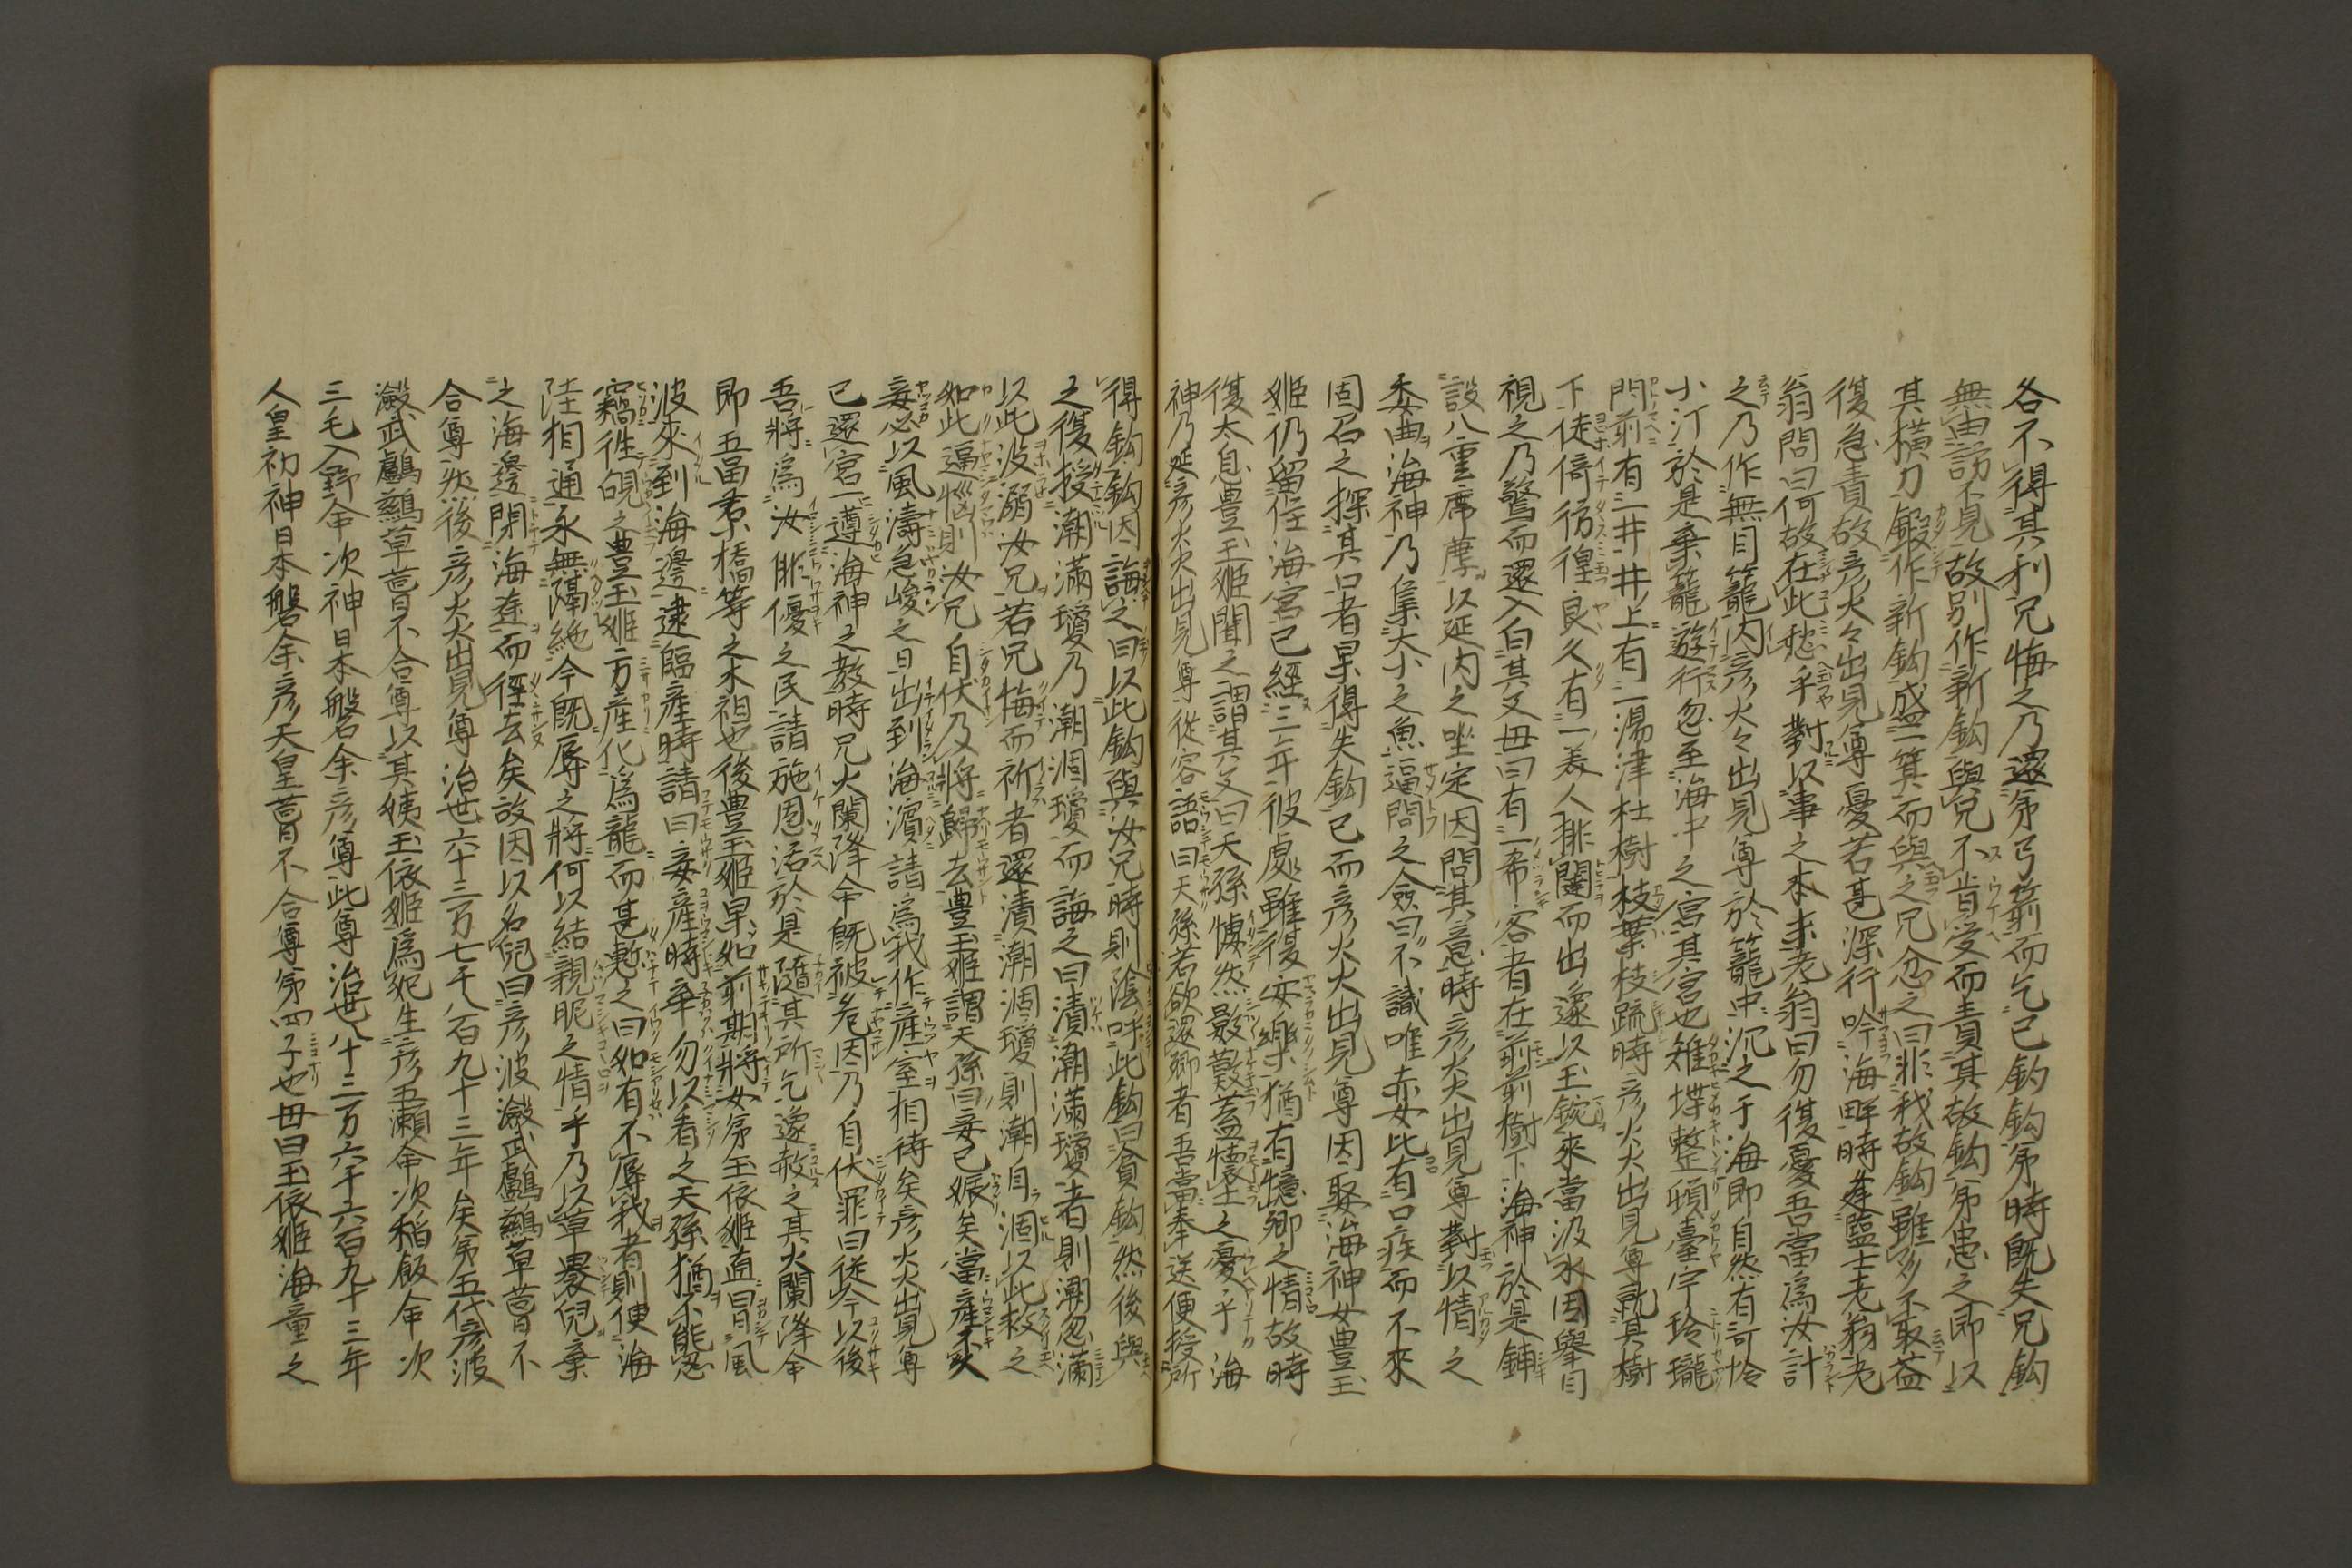 各不得其利兄悔之乃還弟弓箭而乞己釣鈎弟時既失兄鈎
無由訪不見故別作新鈎與兄不肯受而責其故鈎弟患之即以
其横刀鍛作新鈎盛一箕而與之兄忿之曰非我故鈎雖多不取益
復急責故彦火々出見尊憂苦甚深行吟海畔時逢塩土老翁老
翁問曰何故在此愁乎對以事之本末老翁曰勿復憂吾當為汝計
之乃作無目籠内彦火々出見尊於籠中沉之于海即自然有可怜
小汀於是棄籠遊行忽至海中之宮其宮也雉堞整頓臺宇玲瓏
門前有一井井上有一湯津杜樹枝葉枝疏時彦火火出見尊就其樹
下徒倚彷徨良久有一美人排闥而出遂以玉鋺來當汲水因擧目
視之乃驚而還入白其父母曰有一希客者在前前樹下海神於是鋪
設八重席薦以延内之坐定因問其意時彦火火出見尊對以情之
委曲海神乃集大小之魚逼問之僉曰不識唯赤女比有口疾而不來
固召之探其口者果得失鈎已而彦火火出見尊因娶海神女豊玉
姫仍留住海宮已經三年彼處雖復安樂猶有憶鄕之情故時
復太息豊玉姫聞之謂其父曰天孫悽然數歎蓋懐土之憂乎海
神乃延彦火火出見尊從容語曰天孫若欲還郷者吾當奉送便授所
得鈎鈎因誨之曰以此鈎與汝兄時則陰呼此鈎曰貧鈎然後與
之復授潮滿瓊乃潮涸瓊而誨之曰漬潮滿瓊者則潮忽滿
以此波溺汝兄若兄悔而祈者還漬潮涸瓊則潮自涸以此救之
如此逼惱則汝兄自伏乃將歸去豊玉姫謂天孫曰妾已娠矣當産不久
妾必以風濤急峻之日出到海濵請為我作産室相待矣彦火火出見尊
已還宮一遵海神之教時兄火闌降命既被危困乃自伏罪曰從今以後
吾將為汝俳優之民請施恩活於是隨其所乞遂赦之其火闌降命
即五當君橋等之本祖也後豊玉姫果如前期將女弟玉依姫直冒風
波來到海邊逮臨産時請曰妾産時幸勿以看之天孫猶不能忍
竊徃覘之豊玉姫方産化為龍而甚慙之曰如有不辱我者則使海
陸相通永無隔絶今既辱之將何以結親昵之情乎乃以草裹兒棄
之海邊閉海途而徑去矣故因以名兒曰彦波瀲武鸕鷀草葺不
合尊然後彦火火出見尊治世六十三万七千八百九十三年矣第五代彦波
瀲武鸕鷀草葺不合尊以其姨玉依姫為妃生彦五瀬命次稲飯命次
三毛入野命次神日本磐余彦尊此尊治世八十三万六千六百九十三年
人皇初神日本磐余彦天皇葺不合尊第四子也母曰玉依姫海童之